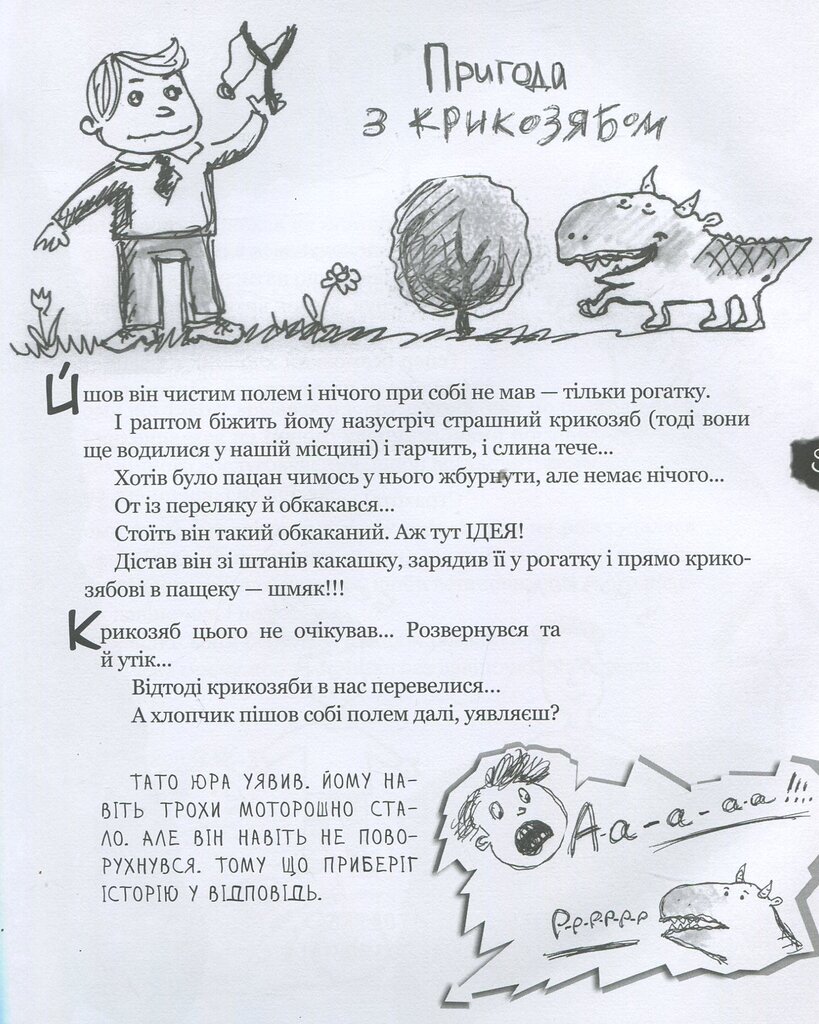 Пригода
з крикозябом
Йшов він чистим полем і нічого при собі не мав — тільки рогатку.
І раптом біжить йому назустріч страшний крикозяб (тоді вони
ще водилися у нашій місцині) і гарчить, і слина тече...
Хотів було пацан чимось у нього жбурнути, але немає нічого...
От із переляку й обкакався...
Стоїть він такий обкаканий. Аж тут ІДЕЯ!
Дістав він зі штанів какашку, зарядив її у рогатку і прямо крико-
зябові в пащеку — шмяк!!!
Крикозяб цього не очікував... Розвернувся та
й утік...
Відтоді крикозяби в нас перевелися...
А хлопчик пішов собі полем далі, уявляєш?
ТАТО ЮРА УЯВИВ. ЙОМУ НА-
ВІТЬ ТРОХИ МОТОРОШНО СТА-
ЛО. АЛЕ ВІН НАВІТЬ НЕ ПОВО-
РУХНУВСЯ. ТОМУ ЩО ПРИБЕРІГ
ІСТОРІЮ У ВІДПОВІДЬ.
А-а-а-а-а!!!!
Р-р-р-р-р-р